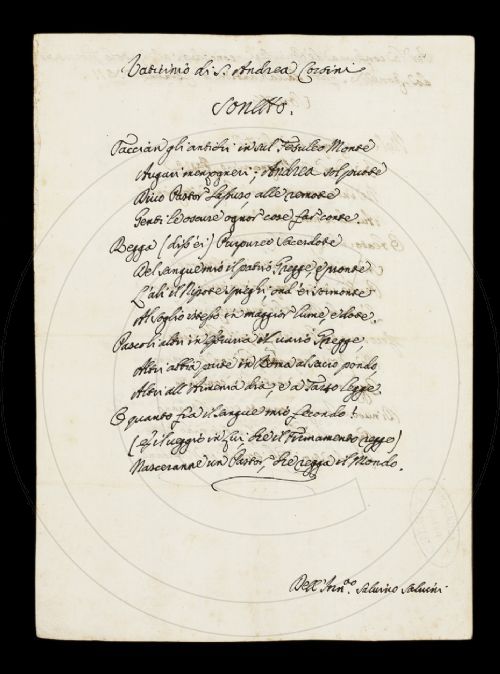 Vaticinio di S. Andrea Corsini
Sonetto.
Taccian gli antichi in sul Fesuleo Monte
Auguri menzogneri; Andrea sol puote
Divo Pastor Lassuso alle remote
Genti le oscure ognor cose far conte
Regga (diss'ei) Purpureo Sacerdote
Del sangue mio il patrio Gregge, e pronte
L'ali il Nipote spieghi, ond'ei sormonte
Al soglio istesso in maggior lume, e dote.
Pascoli altri in il vario Gregge,
Altri abbia parte in Roma al sacro pondo
Altri all'Armenia dia, e a Tarso legge.
O quanto fia il sangue mio fecondo!
(e il veggio in lui, che il Firmamento regge)
Nasceranne un Pastor, che regga il Mondo.
Dell' Salvino Salvini